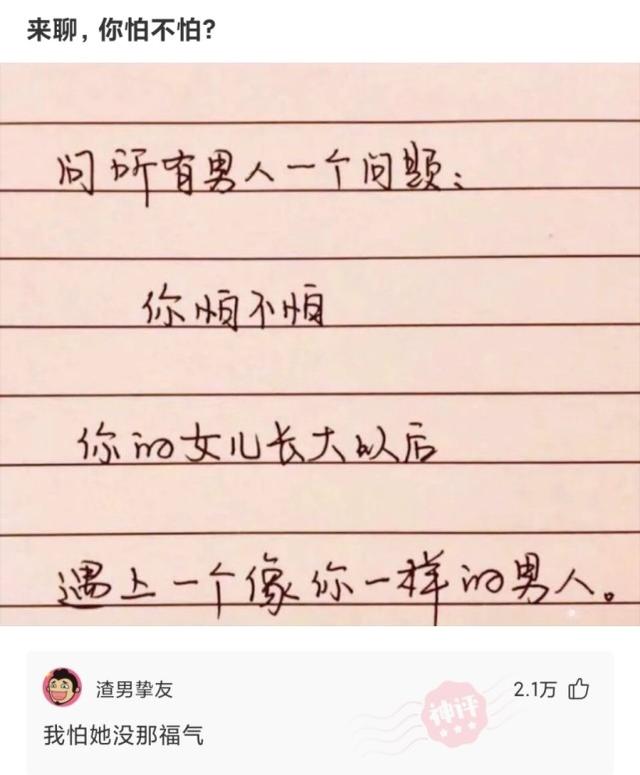 来聊，你怕不怕？
问所有男人一个问题：
你怕不怕
你的女儿长大以后
遇上一个像你一样的男人。
渣男挚友
2.1万
神评
我怕她没那福气